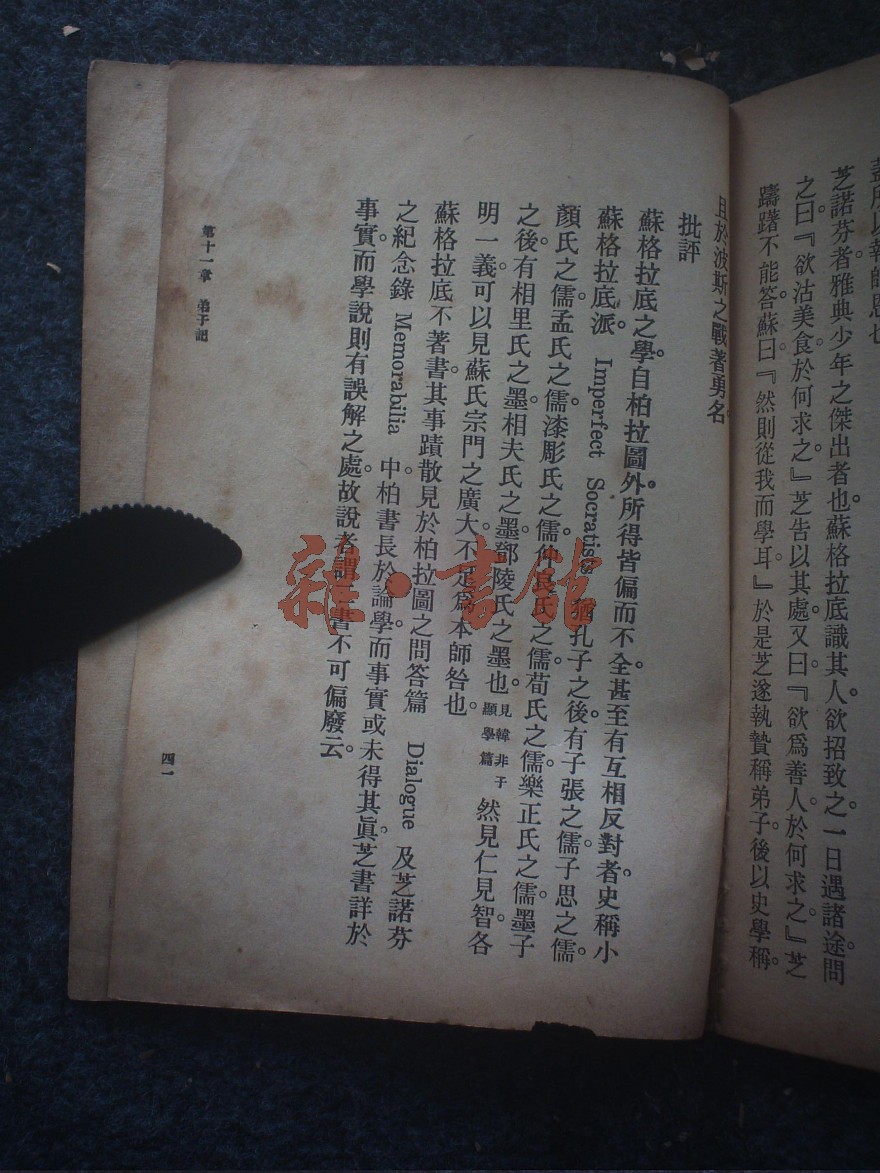 盡所以報師恩也
芝諾芬者雅典少年之傑出者也。蘇格拉底識其人。欲招致之。一日遇諸途。問
之曰。『欲沽美食。於何求之。』芝告以其處。又曰。『欲爲善人。於何求之。』芝
躊躇不能答。蘇曰。『然則從我而學耳。』於是芝遂執贄稱弟子。後以史學稱。
且於波斯之戰著勇名。
批評
蘇格拉底之學。自柏拉圖外。所得皆偏而不全。甚至有互相反對者。史稱小
蘇格拉底派。 Imperfect Socratists 猶孔子之後。有子張之儒。子思之儒。
顏氏之儒。孟氏之儒。漆彫氏之儒。仲良氏之儒。荀氏之儒。樂正氏之儒。墨子
之後。有相里氏之墨。相夫氏之墨。鄧陵氏之墨也。見韓非子顯學篇 然見仁見智。各
明一義。可以見蘇氏宗門之廣大。不足爲本師咎也。
蘇格拉底不著書。其事蹟散見於柏拉圖之問答篇 Dialogue 及芝諾芬
之紀念錄 Memorabilia 中。柏書長於論學。而事實或未得其眞。芝書詳於
事實。而學說則有誤解之處。故說者謂二書不可偏廢云。
第十一章 弟子記
四一
雜·書館